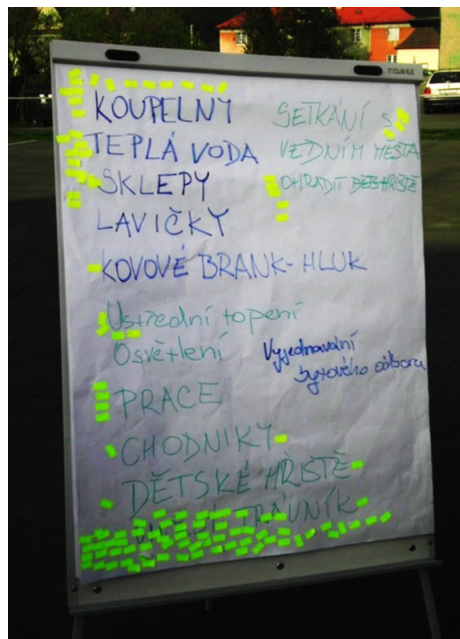 KOUPELNY
TEPLÁ VODA
SKLEPY
LAVIČKY
KOVOVÉ BRANK-HLUK
Ustřední topení
Osvětlení
PRACE
CHODNIKY
DĚTSKÉ HŘIŠTĚ
TRÁVNÍK
SETKÁNÍ S
VEDNÍM MĚSTA
OHRADIT DĚTS HŘIŠTĚ
Vyjednavání
bytového odboru